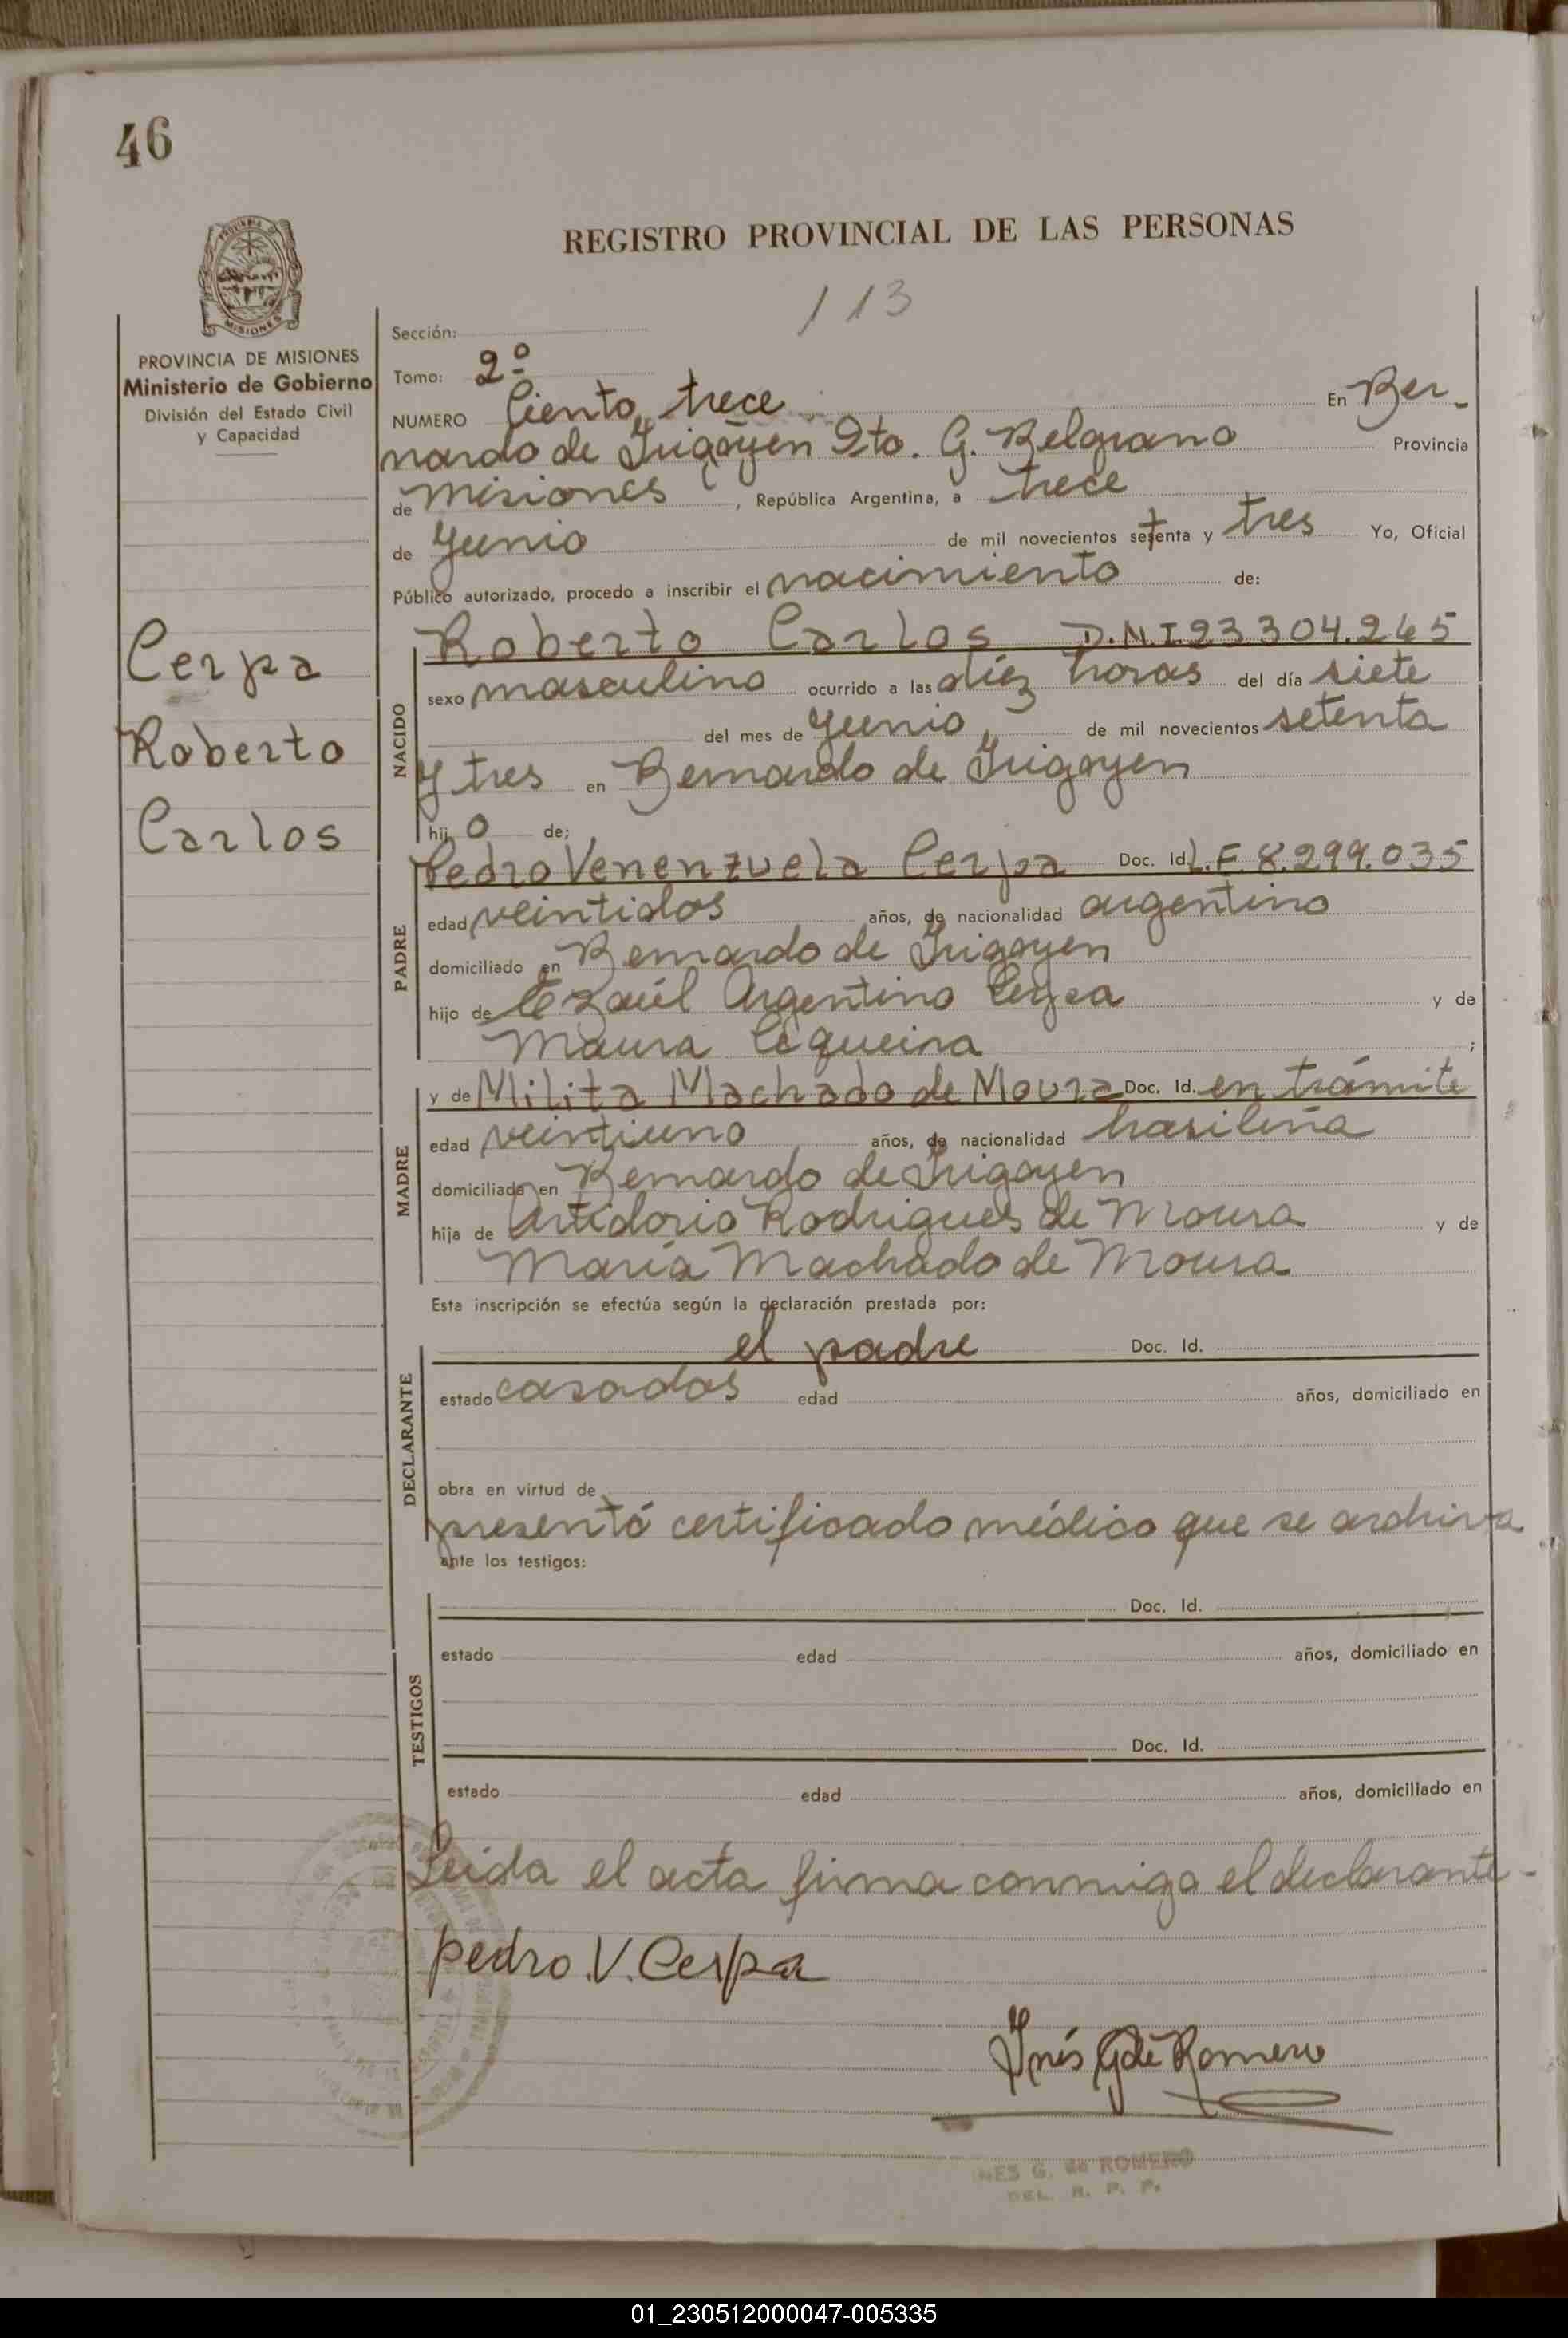 46
REGISTRO PROVINCIAL DE LAS PERSONAS
113
MISIONES
PROVINCIA DE MISIONES
Ministerio de Gobierno
División del Estado Civil
y Capacidad
Cerpa
Roberto
Carlos
Sección:
Tomo: 2º
NUMERO Ciento trece En Ber-
nardo de Irigoyen Dto. G. Belgrano Provincia
de Misiones, República Argentina, a trece
de Junio de mil novecientos setenta y tres Yo, Oficial
Público autorizado, procedo a inscribir el nacimiento de:
NACIDO
Roberto Carlos D.N.I 23304.265
sexo masculino ocurrido a las diéz horas del día siete
del mes de Junio, de mil novecientos setenta
y tres en Bernardo de Irigoyen
hij o de;
PADRE
Pedro Venenzuela Cerpa Doc. Id. L.E. 8.299.035
edad veintidos años, de nacionalidad argentino
domiciliado en Bernardo de Irigoyen
hijo de Argentino Cerpa y de
Maura ;
MADRE
y de Milita Machado de Moura Doc. Id. en trámite
edad veintiuno años, de nacionalidad brasileña
domiciliada en Bernardo de Irigoyen
hija de Antidorio Rodrigues de Moura y de
María Machado de Moura
Esta inscripción se efectúa según la declaración prestada por:
DECLARANTE
el padre Doc. Id.
estado casados edad años, domiciliado en
obra en virtud de
presentó certificado médico que se archiva
ante los testigos:
TESTIGOS
Doc. Id.
estado edad años, domiciliado en
Doc. Id.
estado edad años, domiciliado en
Leida el acta firma conmigo el declarante-
pedro.V.Cerpa
Inés G de Romero
INES G. de ROMERO
DEL. R. P. P.
01_230512000047-005335